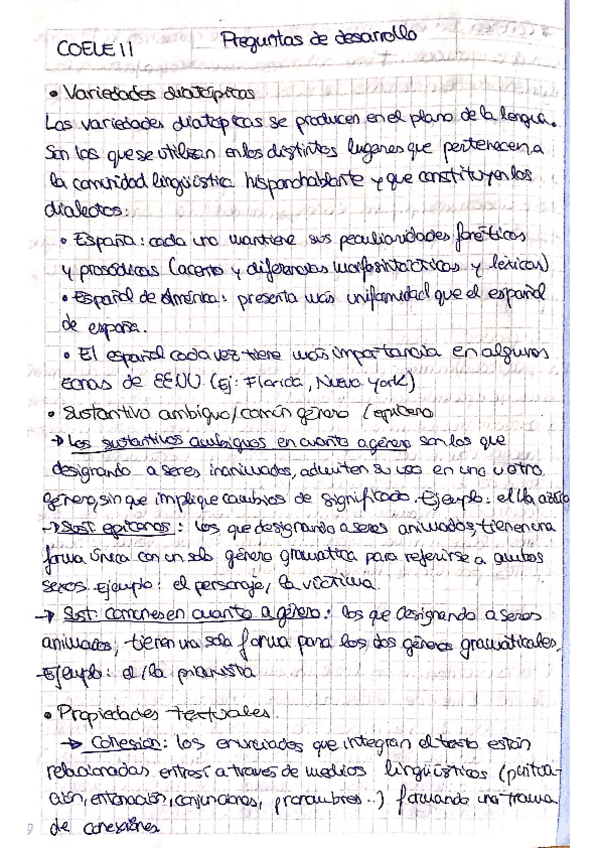 COELE II
Preguntas de desarrollo
• Variedades diatópicas
Las variedades diatópicas se producen en el plano de la lengua.
Son las que se utilizan en los distintos lugares que pertenecen a
la comunidad lingüística hispanohablante y que constituyen los
dialectos:
• España: cada una mantiene sus peculiaridades fonéticas
y prosódicas (acento y diferencias morfosintácticas y léxicas)
• Español de América: presenta más uniformidad que el español
de españa.
• El español cada vez tiene más importancia en algunos
zonas de EEUU (Ej: Florida, Nueva york)
• Sustantivo ambiguo/común género / epiceno
→ Los sustantivos ambiguos en cuanto a género son los que
designando a seres inanimados, admiten su uso en uno u otro
género, sin que implique cambios de significado. Ejemplo: el/la
→ Sust. epicenos: los que designando a seres animados, tienen una
forma única con un solo género gramatical para referirse a ambos
sexos. Ejemplo: el personaje, la víctima.
→ Sust. comunes en cuanto a género: los que designando a seres
animados, tienen una sola forma para los dos géneros gramaticales.
Ejemplo: el/la pianista
• Propiedades textuales.
→ Cohesión: los enunciados que integran el texto están
relacionados entre sí a través de medios lingüísticos (puntua-
ción, entonación, conjunciones, pronombres...) formando una trama
de conexiones